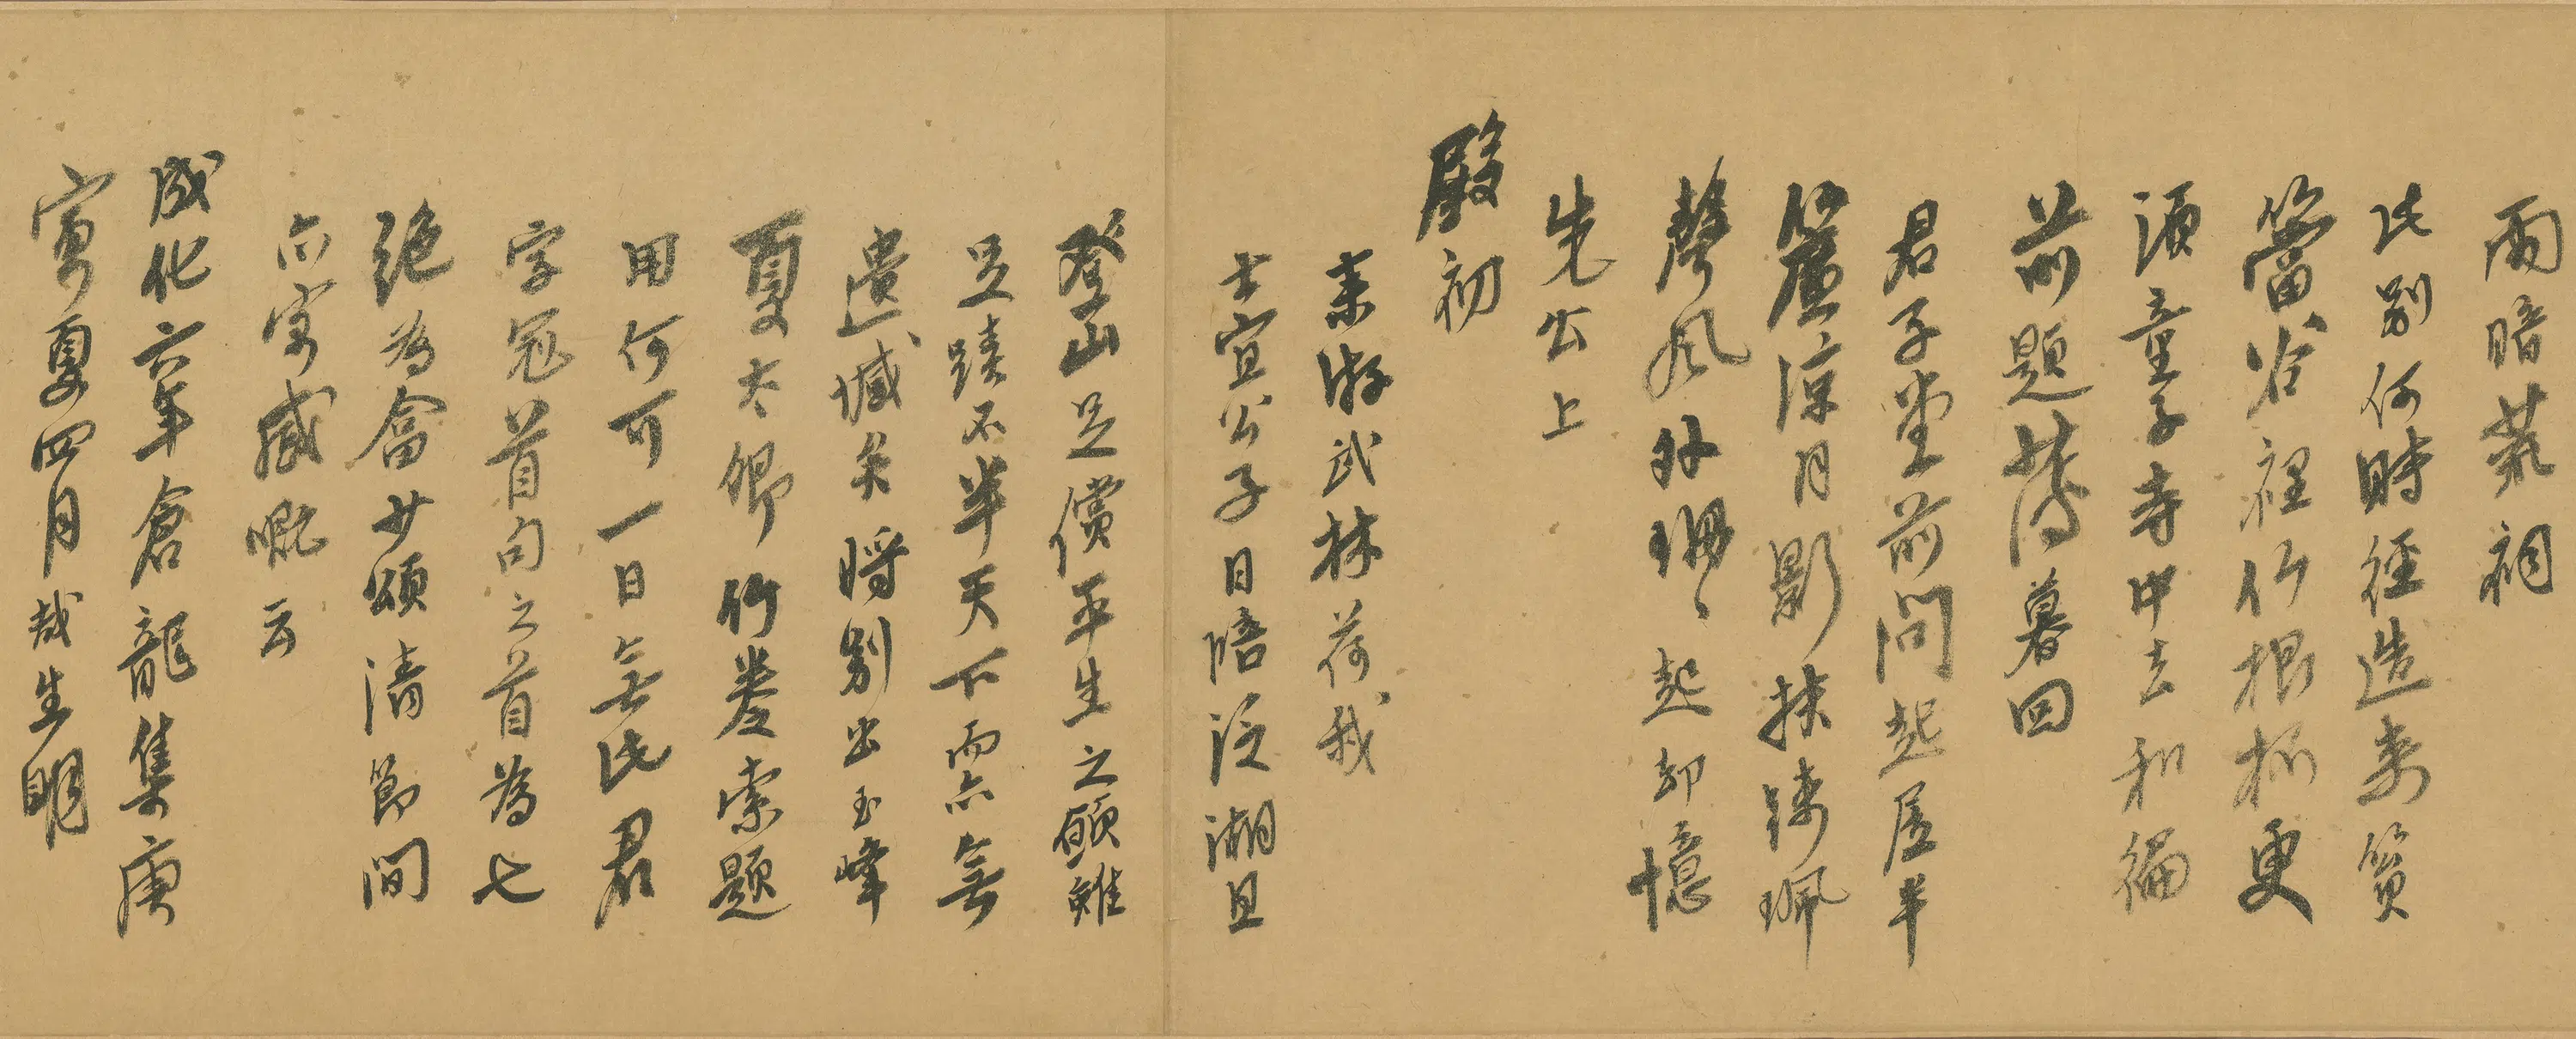 雨暗荒祠
此別何時徑造來篔
簹谷裡竹根杯更
須童子寺中去和徧
前題薄暮回
君子堂前問起居半
簾涼月影扶疎珮
聲風外珊珊起却憶
先公上
殿初
來游武林荷我
士宜公子日陪泛湖且
登山足償平生之願雖
足蹟不半天下而亦無
遺憾矣將別出玉峰
夏太卿竹卷索題
用何可一日無此君
字冠首句之首為七
絕為會廿頌清節間
亦寓感嘅云
成化六年倉龍集庚
寅夏四月哉生明